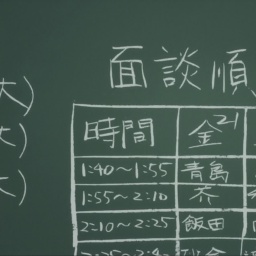 面談順
大)
大)
大)
時間 金21
1:40〜1:55 青島
1:55〜2:10 芥
2:10〜2:25 飯田